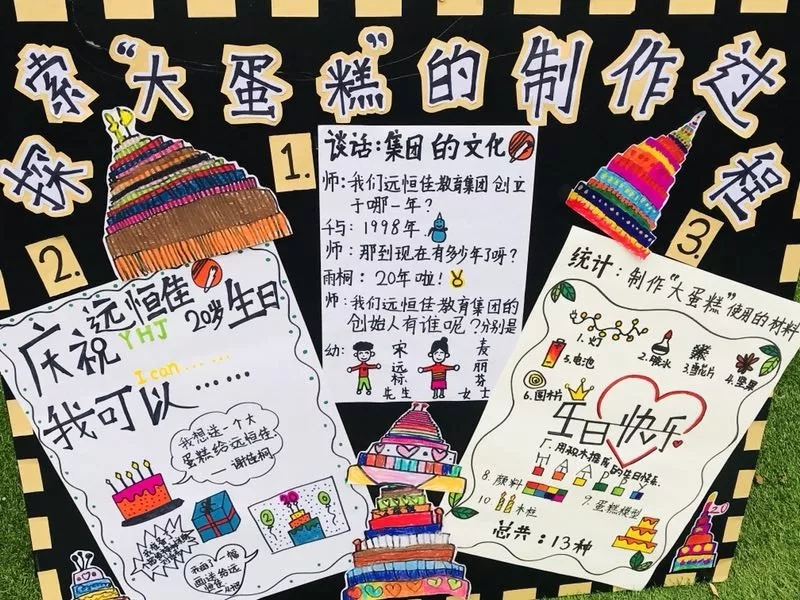 探索“大蛋糕”的制作过程
1.
谈话:集团的文化
师:我们远恒佳教育集团创立
于哪一年?
千与:1998年.
师:那到现在有多少年了呀?
雨桐:20年啦!
师:我们远恒佳教育集团的
创始人有谁呢?分别是
幼:
宋远标先生
麦丽芬女士
2.
庆祝远恒佳20岁生日
YHJ
I can......
我可以......
我想送一个大
蛋糕给远恒佳.
谢佳桐
3.
统计:制作“大蛋糕”使用的材料
1.灯
2.胶水
3.雪花片
4.坚果
5.电池
6.圆木片
生日快乐
HAPPY
8.颜料
9.蛋糕模型
10
木桩
总共:13种